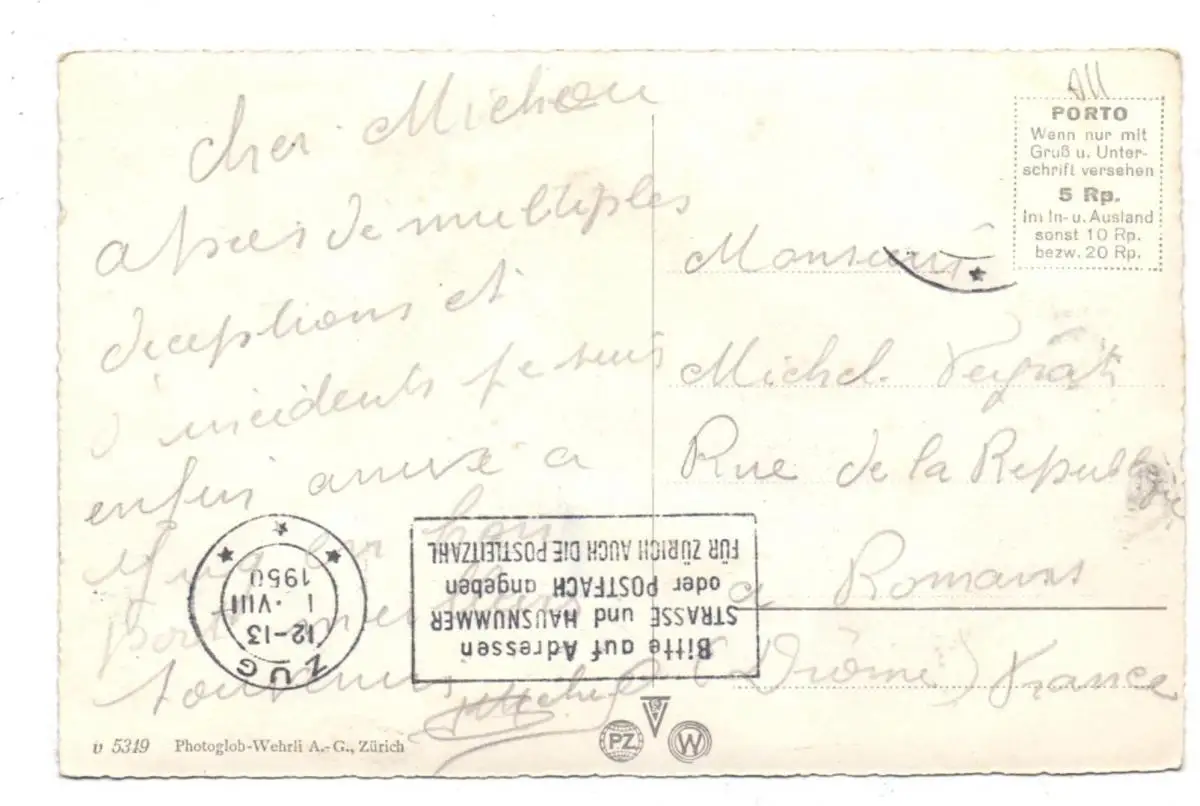 cher Michou
après de multiples
déceptions et
d'incidents je suis
enfin arrivé a
bon
port
PORTO
Wenn nur mit
Gruß u. Unter-
schrift versehen
5 Rp.
im In- u. Ausland
sonst 10 Rp.
bezw. 20 Rp.
Monsieur
Michel Veyrat
Rue de la Republique
a Romans
(Drôme) France
ZUG
12-13
1.VIII
1950
Bitte auf Adressen
STRASSE und HAUSNUMMER
oder POSTFACH angeben
FÜR ZÜRICH AUCH DIE POSTLEITZAHL
v 5319 Photoglob-Wehrli A.-G., Zürich
PZ
W